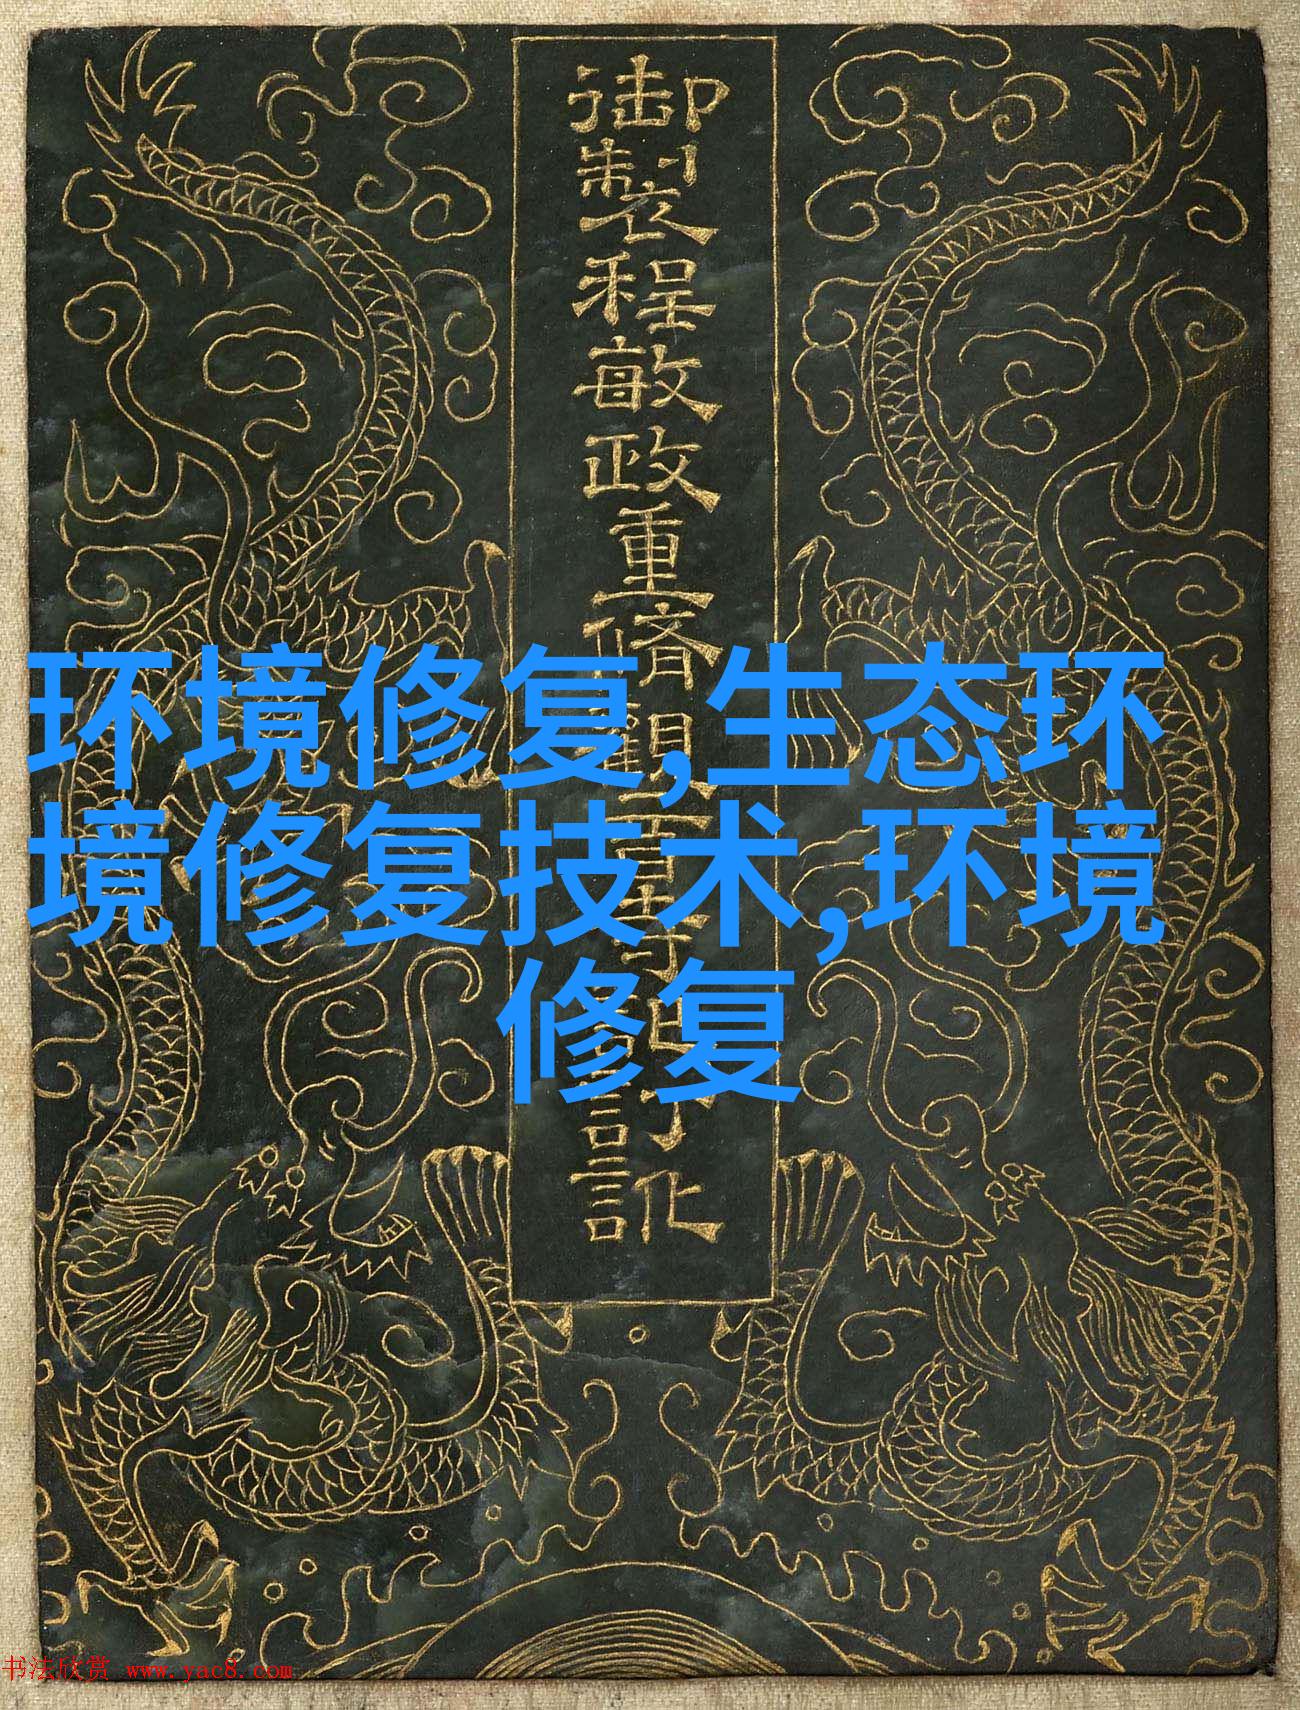 御製程敏政重脩觀音寺記訂訛
环境修复,生态环
境修复技术,环境
修复
书法欣赏 www.yac8.com